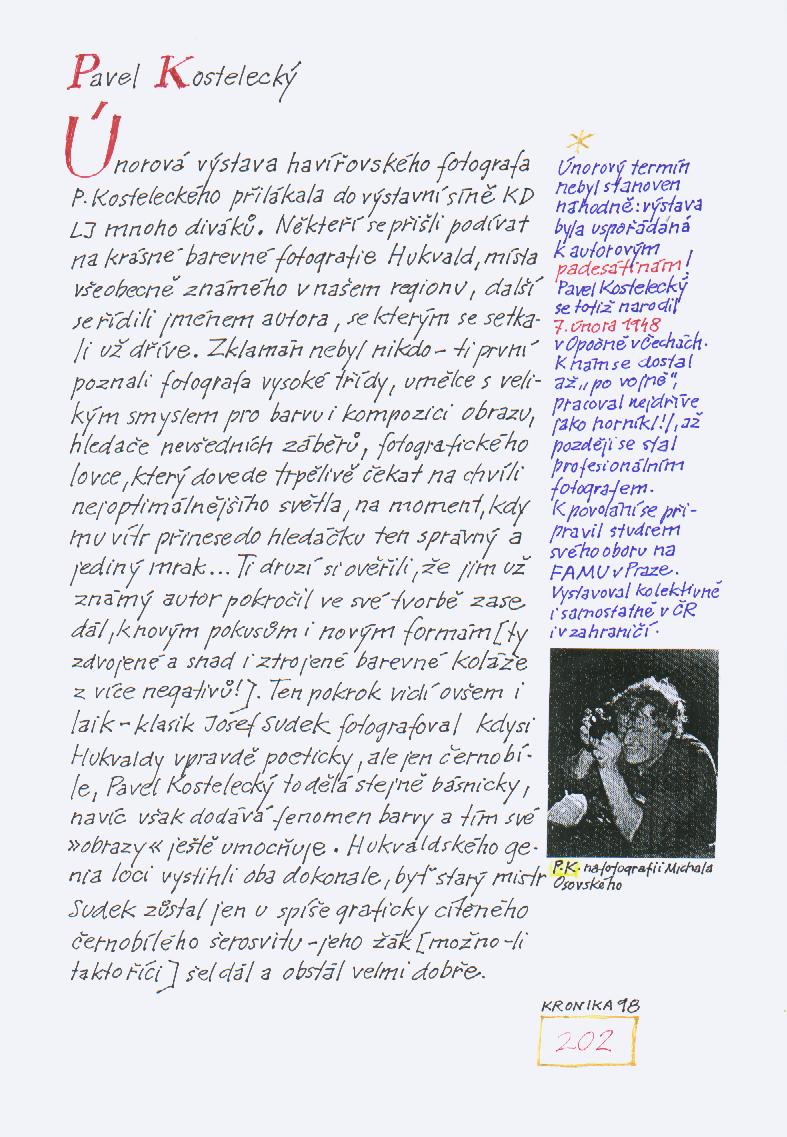 Pavel Kostelecký
Únorová výstava havířovského fotografa
P. Kosteleckého přilákala do výstavní síně KD
LJ mnoho diváků. Někteří se přišli podívat
na krásné barevné fotografie Hukvald, místa
všeobecně známého v našem regionu, další
se řídili jménem autora, se kterým se setka-
li už dříve. Zklamán nebyl nikdo - ti první
poznali fotografa vysoké třídy, umělce s veli-
kým smyslem pro barvu i kompozici obrazu,
hledače nevšedních záběrů, fotografického
lovce, který dovede trpělivě čekat na chvíli
nejoptimálnějšího světla, na moment, kdy
mu vítr přinese do hledáčku ten správný a
jediný mrak... Ti druzí si ověřili, že jim už
známý autor pokročil ve své tvorbě zase
dál, k novým pokusům i novým formám [ty
zdvojené a snad i ztrojené barevné koláže
z více negativů!]. Ten pokrok vidí ovšem i
laik - klasik Josef Sudek fotografoval kdysi
Hukvaldy vpravdě poeticky, ale jen černobí-
le, Pavel Kostelecký to dělá stejně básnicky,
navíc však dodává fenomen barvy a tím své
»obrazy« ještě umocňuje. Hukvaldského ge-
nia loci vystihli oba dokonale, byť starý mistr
Sudek zůstal jen u spíše graficky cítěného
černobílého šerosvitu - jeho žák [možno-li
takto říci] šel dál a obstál velmi dobře.
*
Únorový termín
nebyl stanoven
náhodně: výstava
byla uspořádána
k autorovým
padesátinám!
Pavel Kostelecký
se totiž narodil
7. února 1948
v Opočně v Čechách.
K nám se dostal
až „po vojně",
pracoval nejdříve
jako horník/!/, až
později se stal
profesionálním
fotografem.
K povolání se při-
pravil studiem
svého oboru na
FAMU v Praze.
Vystavoval kolektivně
i samostatně v ČR
i v zahraničí.
P.K. na fotografii Michala
Osovského
KRONIKA 98
202